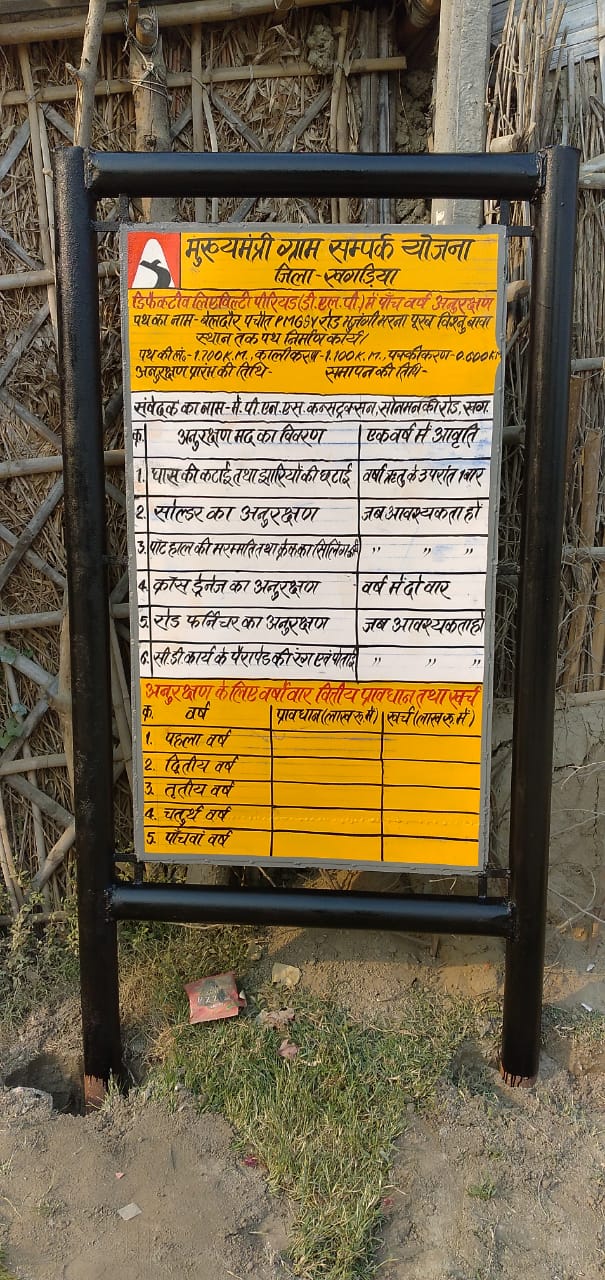 मुख्यमंत्री ग्राम सम्पर्क योजना
जिला-खगड़िया
डिफेक्टीव लिएविल्टि पीरियड(डी.एल.पी.) में पाँच वर्ष अनुरक्षण
पथ का नाम- बेलदौर पचौत PMGSY रोड मुजंगी मरना पूरब विश्नु बाबा
स्थान तक पथ निर्माण कार्य।
पथ की लं:- 1.700 K.M., कालीकरण-1.100 K.M., पक्कीकरण-0.600 K.M
अनुरक्षण प्रारंभ की तिथि- समापन की तिथि-
संवेदक का नाम-मे. पी. एन. एस. कन्सट्रक्सन, सोनमनकी रोड, खग.
क्र. अनुरक्षण मद का विवरण एक वर्ष में आवृति
1. घास की कटाई तथा झारियों की छटाई वर्षा ऋतु के उपरांत 1 बार
2. सोल्डर का अनुरक्षण जब आवश्यकता हो
3. पॉट हाल की मरम्मति तथा क्रेक का सिलिंग " " "
4. क्रॉस ड्रेनेज का अनुरक्षण वर्ष में दो बार
5. रोड फर्निचर का अनुरक्षण जब आवश्यकता हो
6. सी.डी कार्य के पैरापेड की रंग एवं पोताई " " "
अनुरक्षण के लिए वर्षवार वित्तीय प्रावधान तथा खर्च
क्र. वर्ष प्रावधान (लाख रू में) खर्च (लाख रू में)
1. पहला वर्ष
2. द्वितीय वर्ष
3. तृतीय वर्ष
4. चतुर्थ वर्ष
5. पाँचवां वर्ष